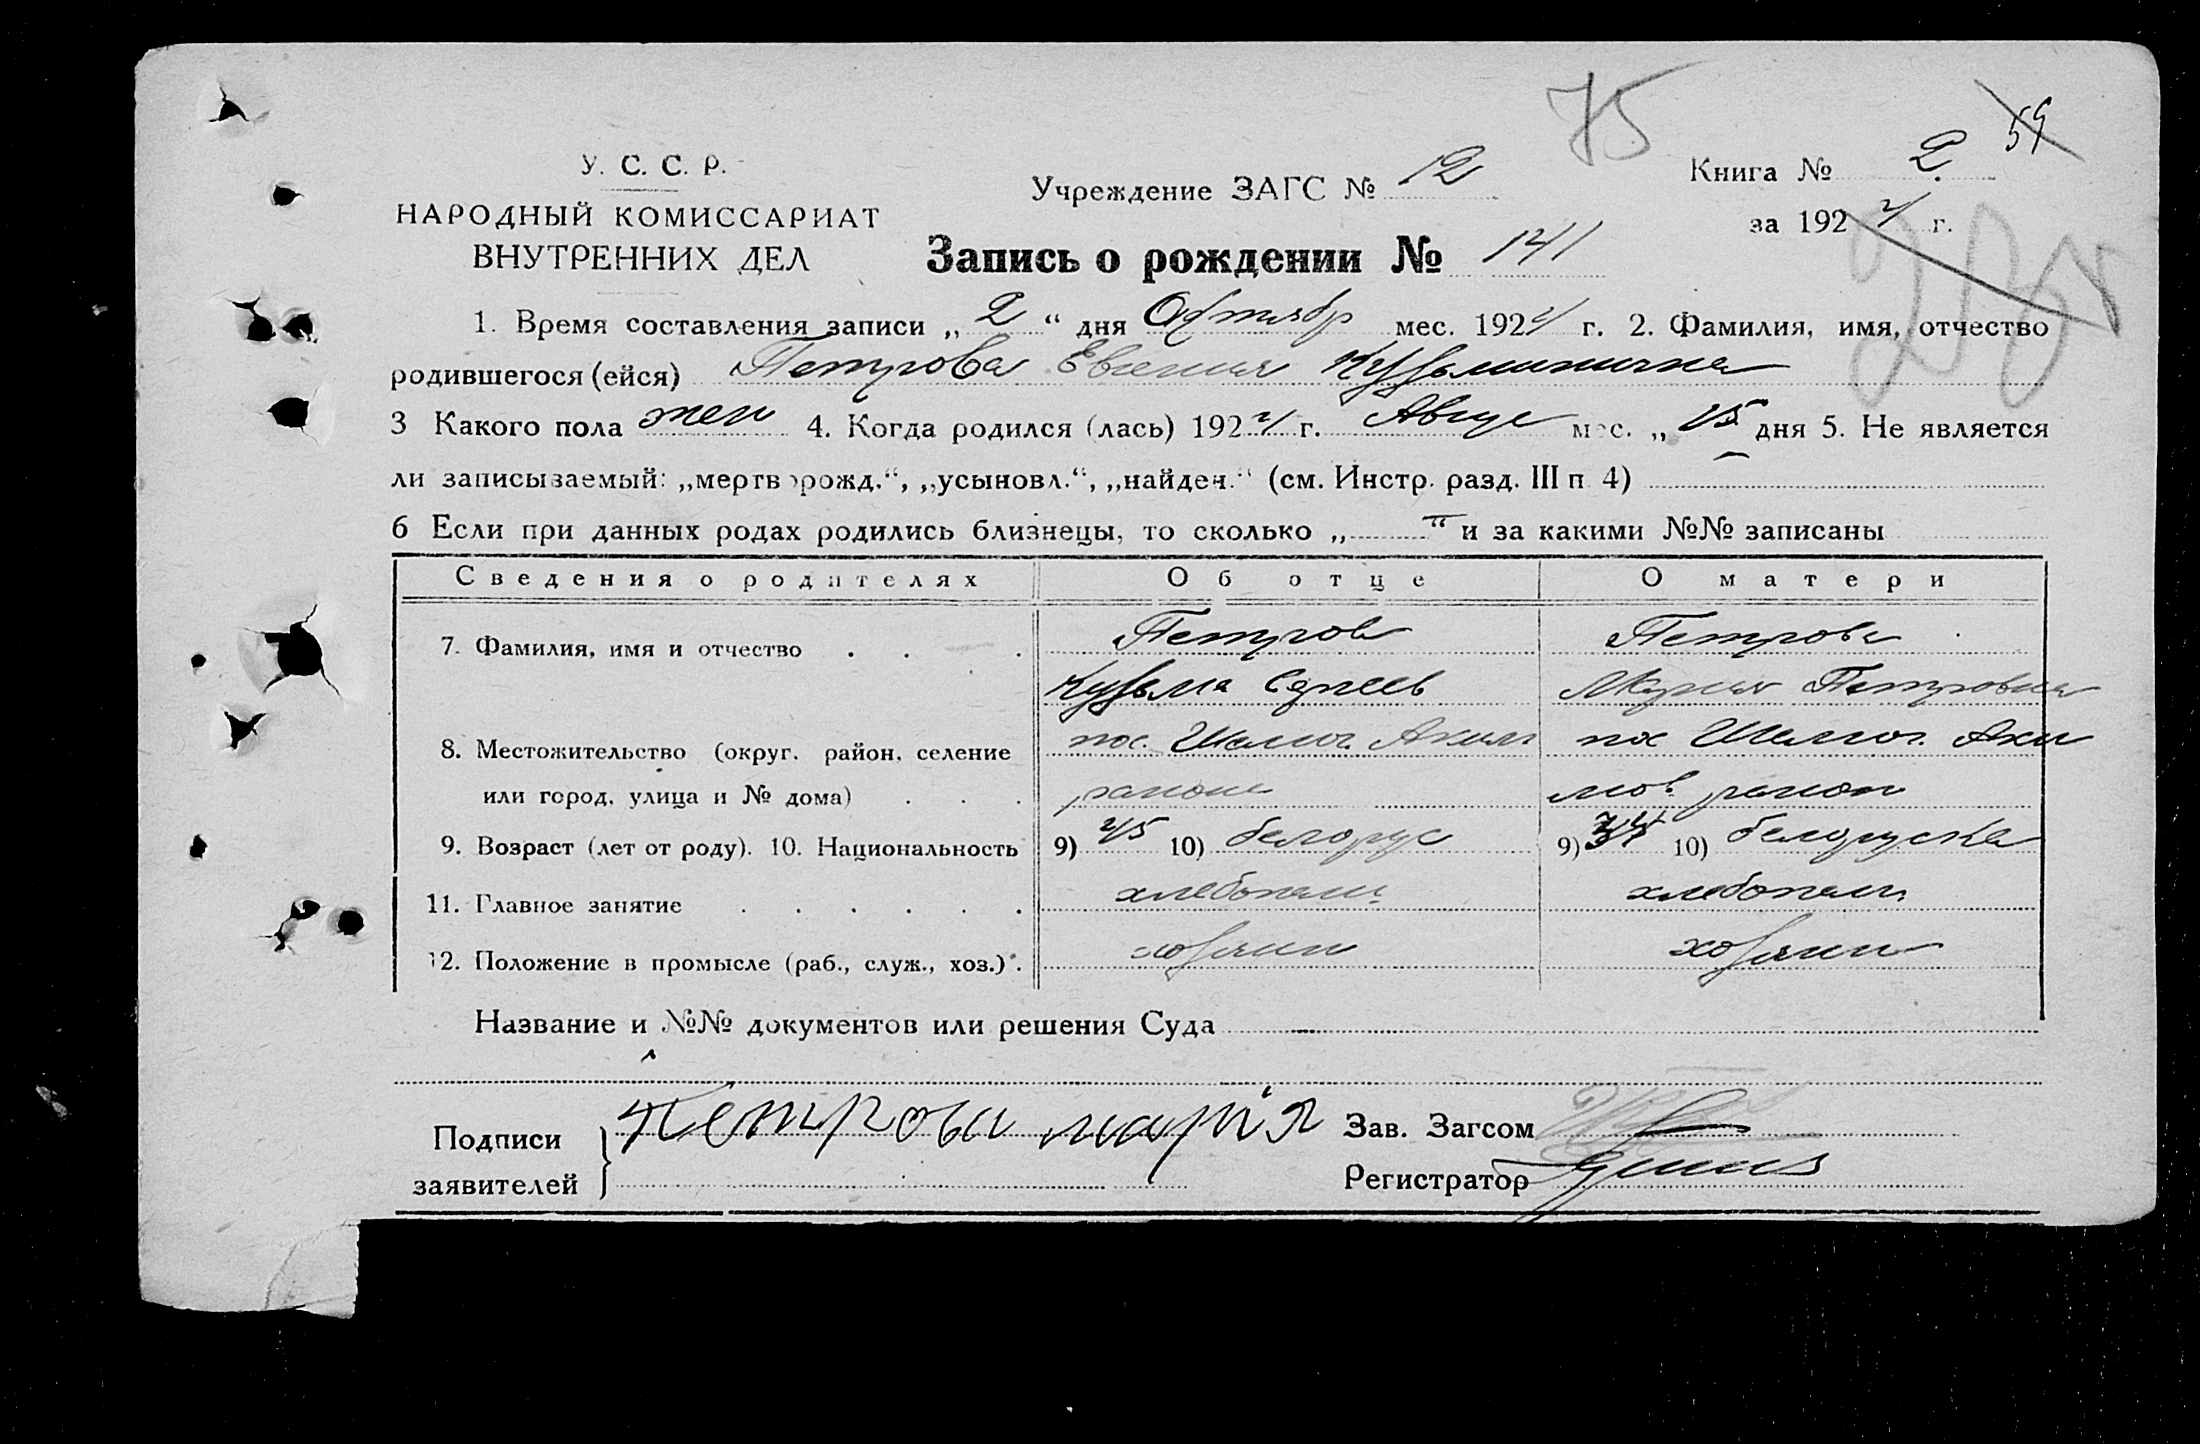 75
59
У. С. С. Р.
НАРОДНЫЙ КОМИССАРИАТ
ВНУТРЕННИХ ДЕЛ
Учреждение ЗАГС № 12
Книга № 2
за 1924 г.
Запись о рождении № 141
1. Время составления записи „ 2 “ дня Октябр мес. 1924 г. 2. Фамилия, имя, отчество
родившегося (ейся) Петрова Евгения Кузьминична
3 Какого пола жен 4. Когда родился (лась) 1924 г. Авгус мес. „ 15 дня 5. Не является
ли записываемый: „мертворожд.“, „усыновл.“, „найден.“ (см. Инстр. разд. III п 4) —
6 Если при данных родах родились близнецы, то сколько „ — “ и за какими №№ записаны
Сведения о родителях Об отце О матери
7. Фамилия, имя и отчество . . . Петров Петрова
Кузьма Сергеев Мария Петровна
8. Местожительство (округ, район, селение пос. Аким пос Аки
или город, улица и № дома) . . . района мов район
9. Возраст (лет от роду). 10. Национальность 9) 45 10) белорус 9) 10) белоруска
11. Главное занятие . . . . . . хлебопаш. хлебопаш.
12. Положение в промысле (раб., служ., хоз.) . хозяин хозяин
Название и №№ документов или решения Суда —
Подписи заявителей } Петрова марія
Зав. Загсом
Регистратор